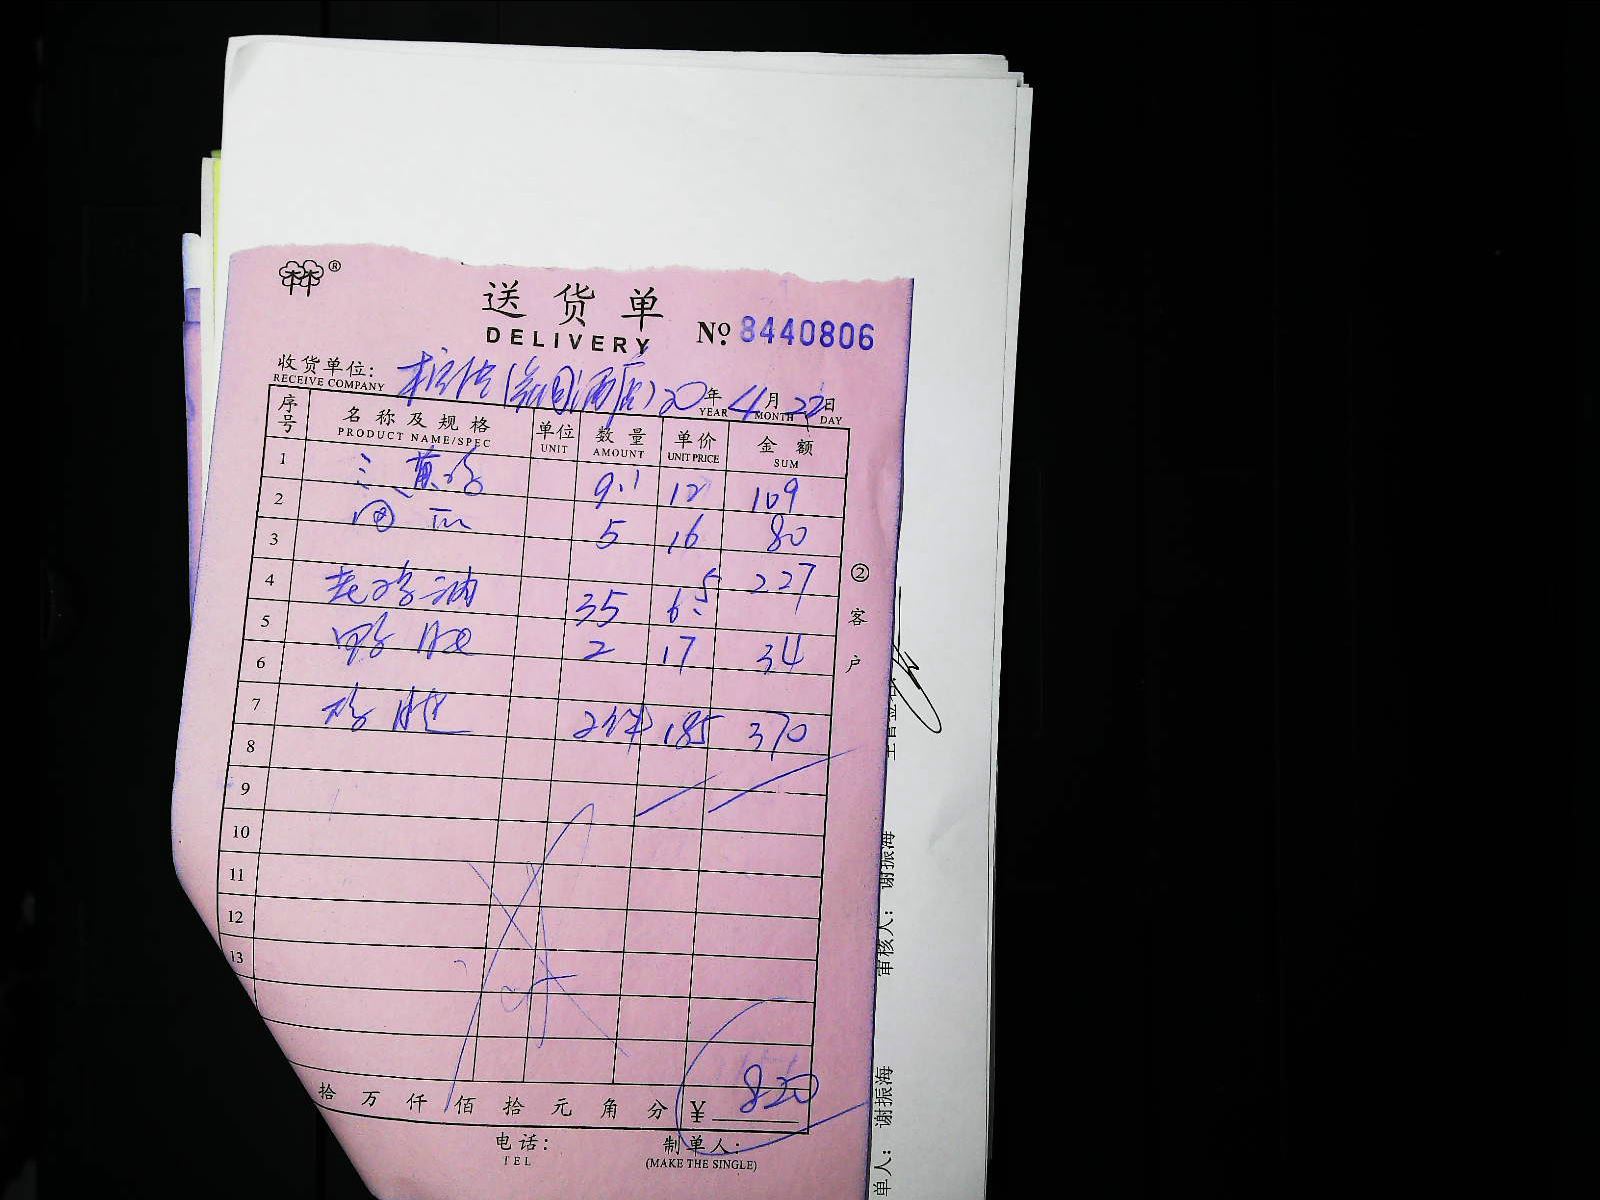 ®
送货单
DELIVERY
№ 8440806
收货单位:
RECEIVE COMPANY
20年 4月 22日
YEAR MONTH DAY
序号 名称及规格 单位 数量 单价 金额
PRODUCT NAME/SPEC UNIT AMOUNT UNIT PRICE SUM
1 三黄鸡 9.1 12 109
2 5 16 80
3
4 老鸡油 35 6.5 227
5 2 17 34
6
7 2件 185 370
8
9
10
11
12
13
拾 万 仟 佰 拾 元 角 分 ¥ 820
电话: 制单人:
TEL (MAKE THE SINGLE)
② 客户
审核人: 谢振海
单人: 谢振海